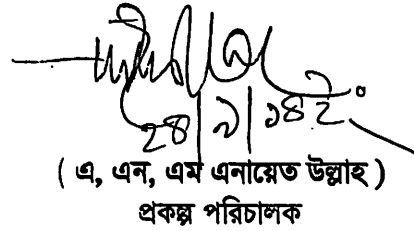 ২৪|৯|১৪ইং
( এ, এন, এম এনায়েত উল্লাহ )
প্রকল্প পরিচালক